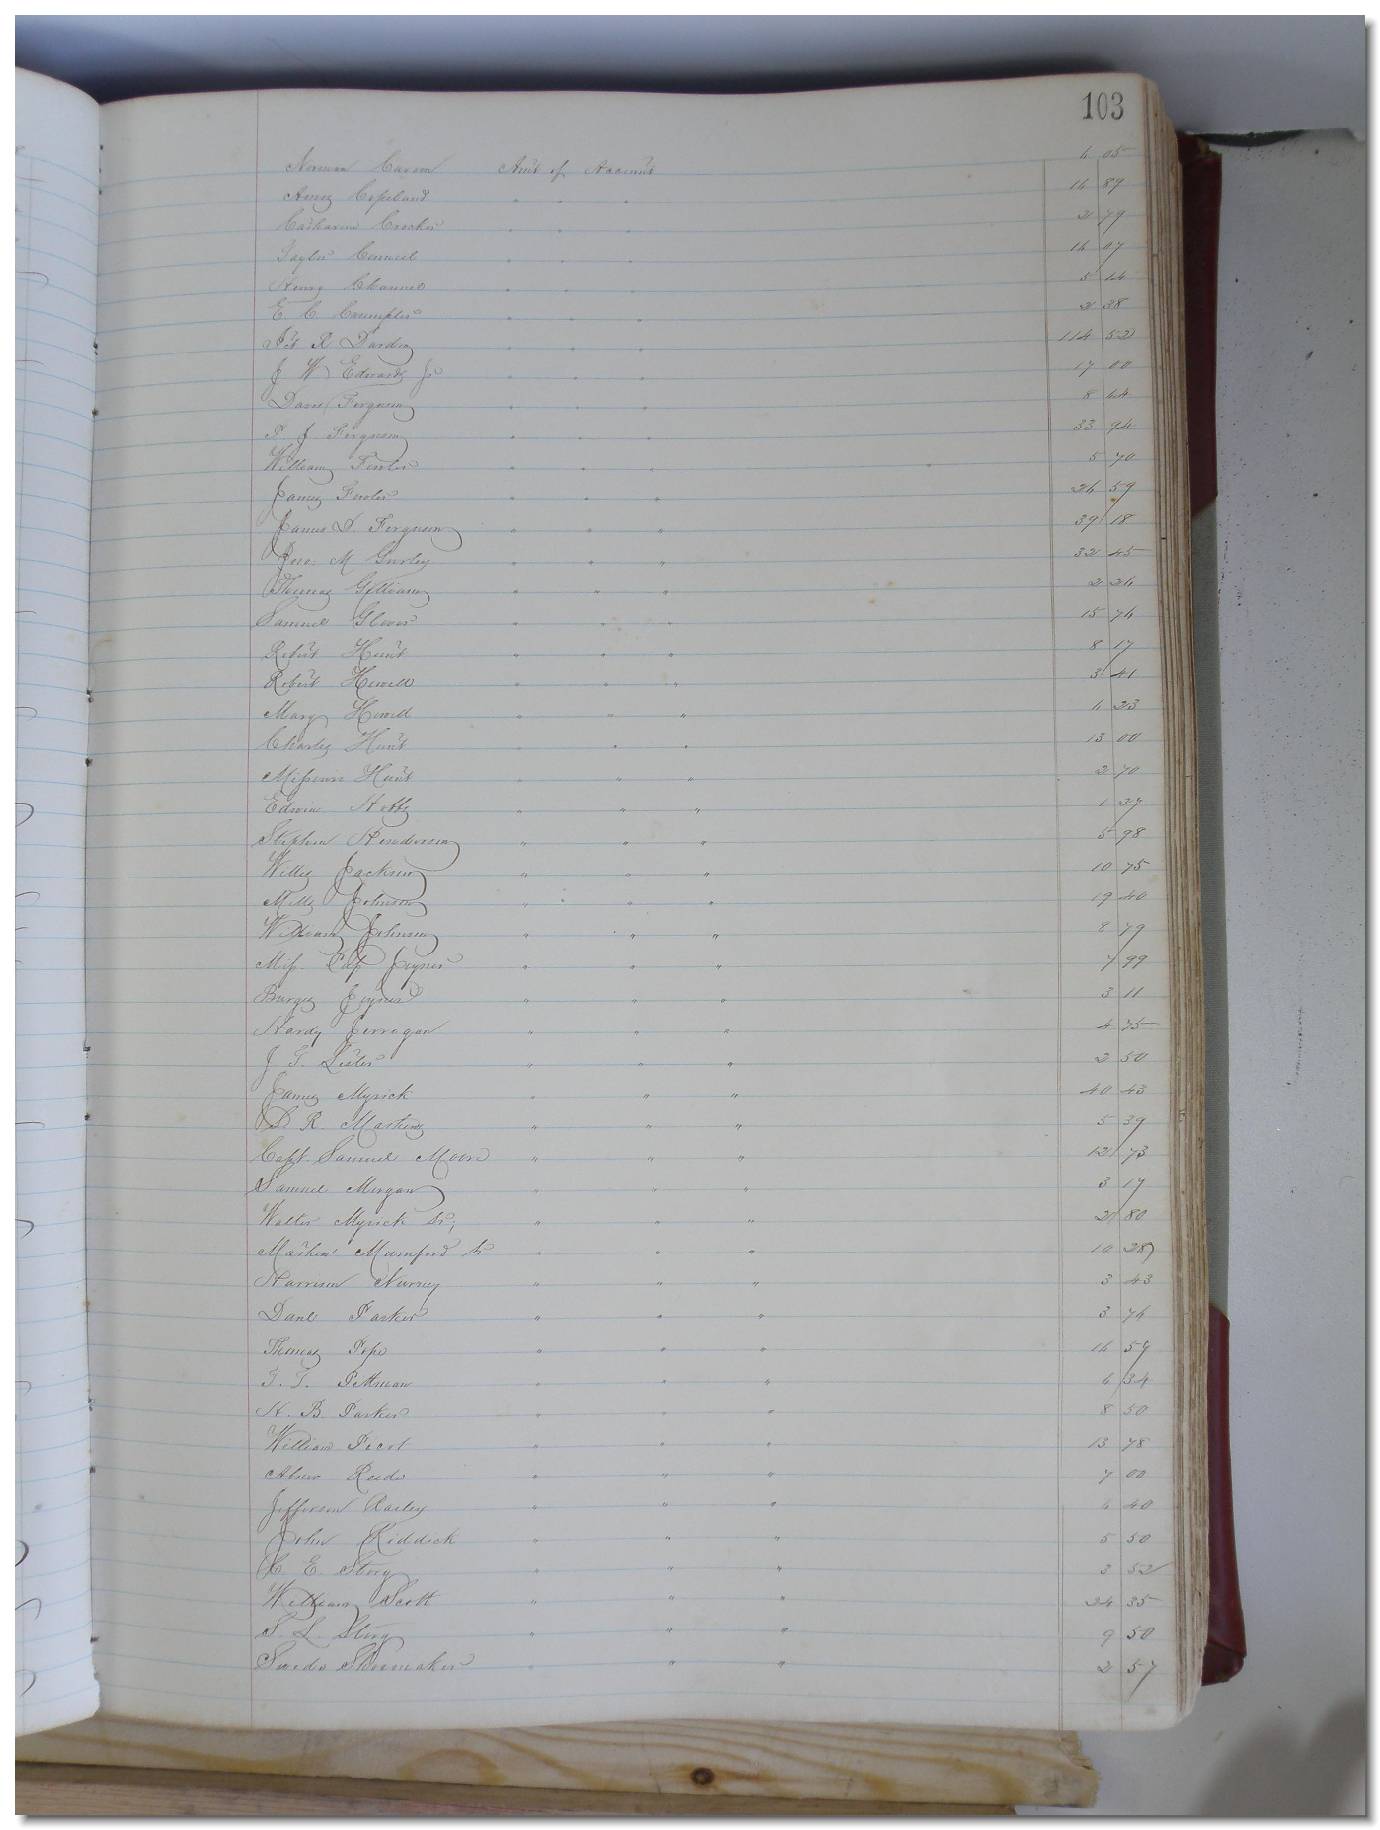 103
Norman Amt of Account 6 05
Amos Copeland " " " 16 89
Catharine Crocker " " " 2 79
Taylor Council " " " 16 07
Henry " " " 5 14
E. C. Crumpler " " " 2 38
R Darden " " " 114 52
J W Edwards Jr " " " 17 00
Ferguson " " " 8 64
J. Ferguson " " " 33 94
William Fowler " " " 5 70
James Fowler " " " 26 59
James D. Ferguson " " " 39 18
Jno. M Gurley " " " 32 45
Thomas Gilliam " " " 2 26
Samuel Glover " " " 15 76
Robert Hunt " " " 8 17
Robert Howell " " " 3 41
Mary Howell " " " 6 23
Charles Hunt " " " 13 00
Missouri Hunt " " " 2 70
Edwin " " " 1 37
Stephen Henderson " " " 5 98
Willis Jackson " " " 10 75
Mills Johnson " " " 19 40
William Johnson " " " 8 79
Miss Joyner " " " 7 99
Burges Joyner " " " 3 11
Hardy Jernagan " " " 4 75
J T. " " " 2 50
James Myrick " " " 40 43
R. " " " 5 39
Capt. Samuel Moore " " " 12 73
Samuel Morgan " " " 3 17
Walter Myrick Sr; " " " 2 80
Mumford " " " 10 28
Harrison " " " 3 43
Danl Parker " " " 3 76
Thomas Pope " " " 16 59
T. T. Pittman " " " 6 34
H. B. Parker " " " 8 50
William " " " 13 78
Abner " " " 7 00
Jefferson " " " 6 40
John Riddick " " " 5 50
E. Story " " " 3 52
William Scott " " " 24 35
S. L. Story " " " 9 50
Shoemaker " " " 2 57